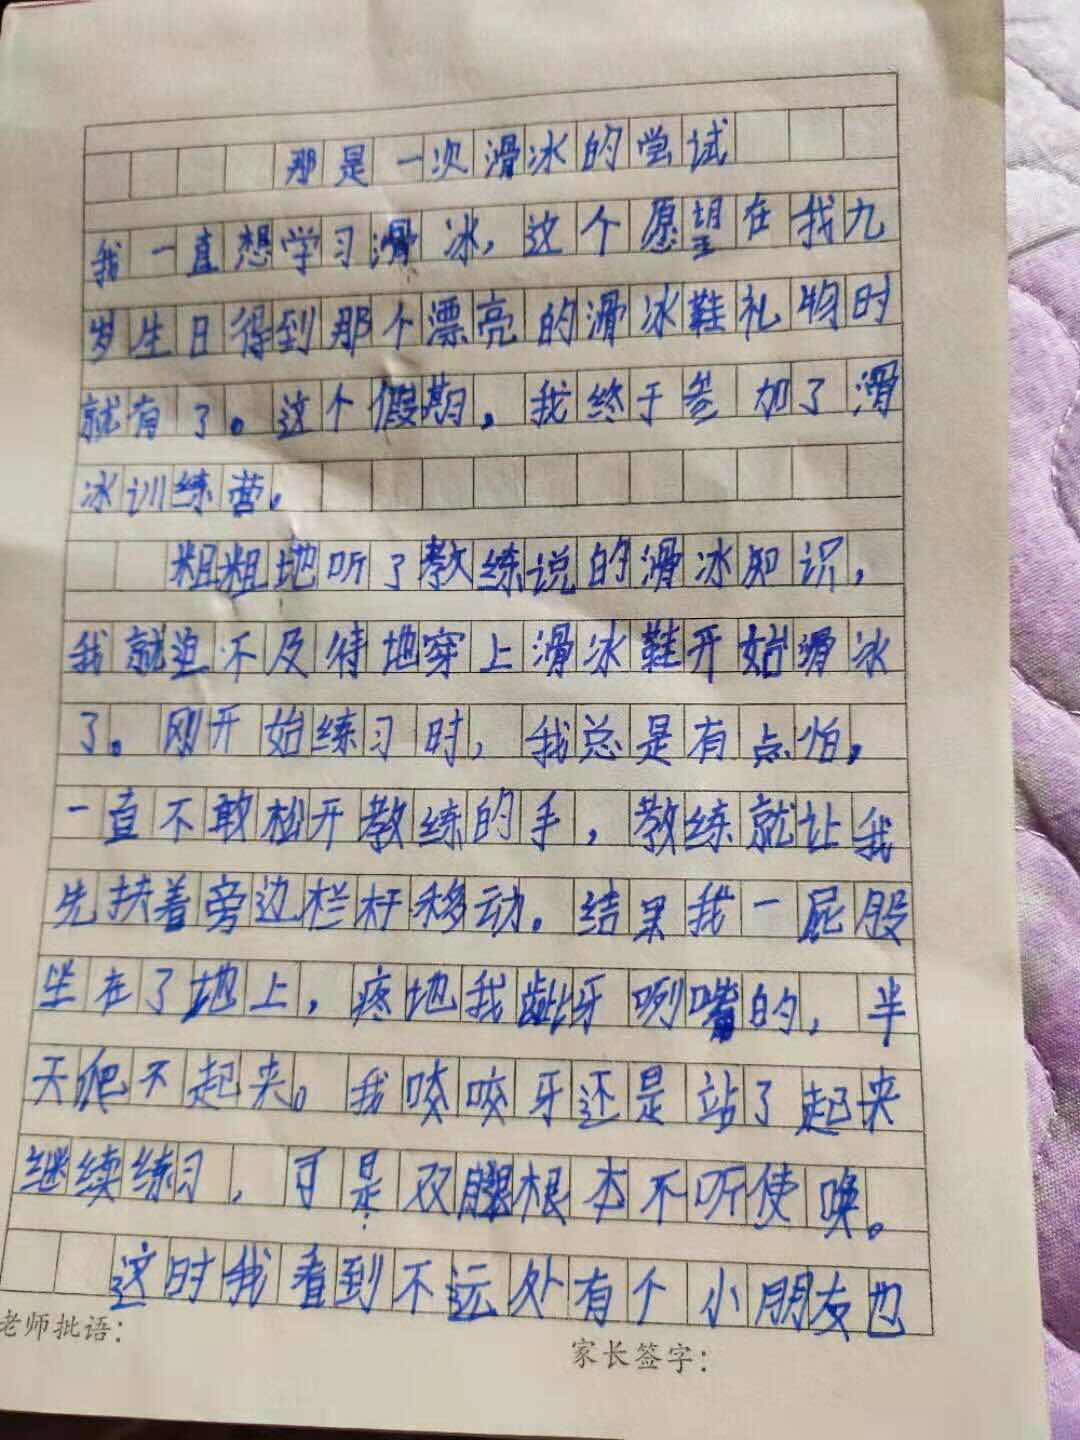 那是一次滑冰的尝试
我一直想学习滑冰，这个愿望在我九
岁生日得到那个漂亮的滑冰鞋礼物时
就有了。这个假期，我终于参加了滑
冰训练营。
粗粗地听了教练说的滑冰知识，
我就迫不及待地穿上滑冰鞋开始滑冰
了。刚开始练习时，我总是有点怕，
一直不敢松开教练的手，教练就让我
先扶着旁边栏杆移动。结果我一屁股
坐在了地上，疼地我龇牙咧嘴的，半
天爬不起来。我咬咬牙还是站了起来
继续练习，可是双腿根本不听使唤。
这时我看到不远处有个小朋友也
老师批语：
家长签字：